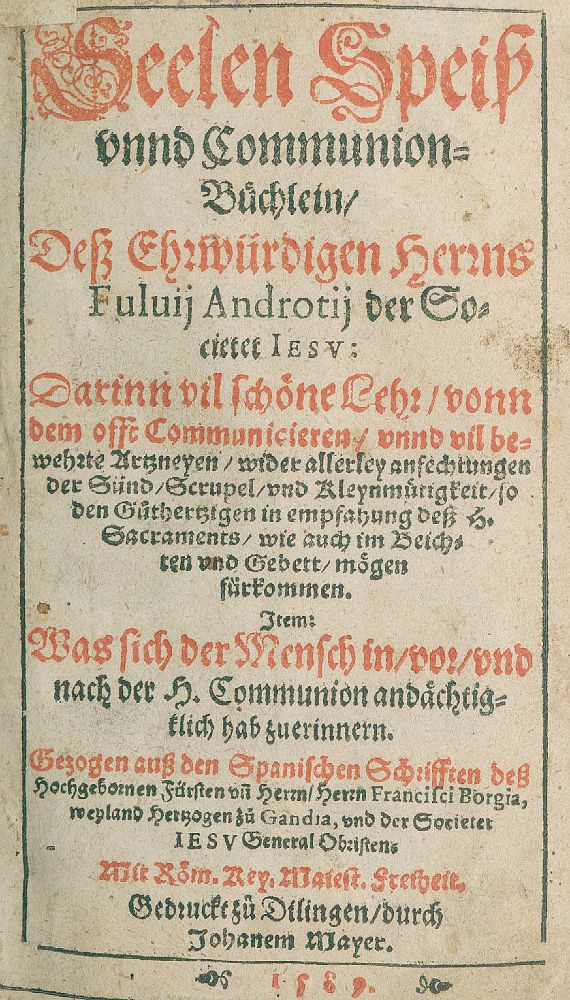 Seelen Speiß
vnnd Communion-
Büchlein/
Deß Ehrwürdigen Herrns
Fuluij Androtij der So-
cietet IESV:
Darinn vil schöne Lehr/ vonn
dem offt Communicieren/ vnnd vil be-
wehrte Artzneyen/ wider allerley anfechtungen
der Sünd/ Scrupel/ vnd Kleynmütigkeit/ so
den Gůthertzigen in empfahung deß H.
Sacraments/ wie auch im Beich-
ten vnd Gebett/ mögen
fürkommen.
Item:
Was sich der Mensch in/ vor/ vnd
nach der H. Communion andächtig-
klich hab zuerinnern.
Gezogen auß den Spanischen Schrifften deß
Hochgebornen Fürsten vñ Herrn/ Herrn Francisci Borgia,
weyland Hertzogen zů Gandia, vnd der Societet
IESV General Obristen.
Mit Röm. Key. Maiest. Freiheit.
Gedruckt zů Dilingen/ durch
Johanem Mayer.
1589.